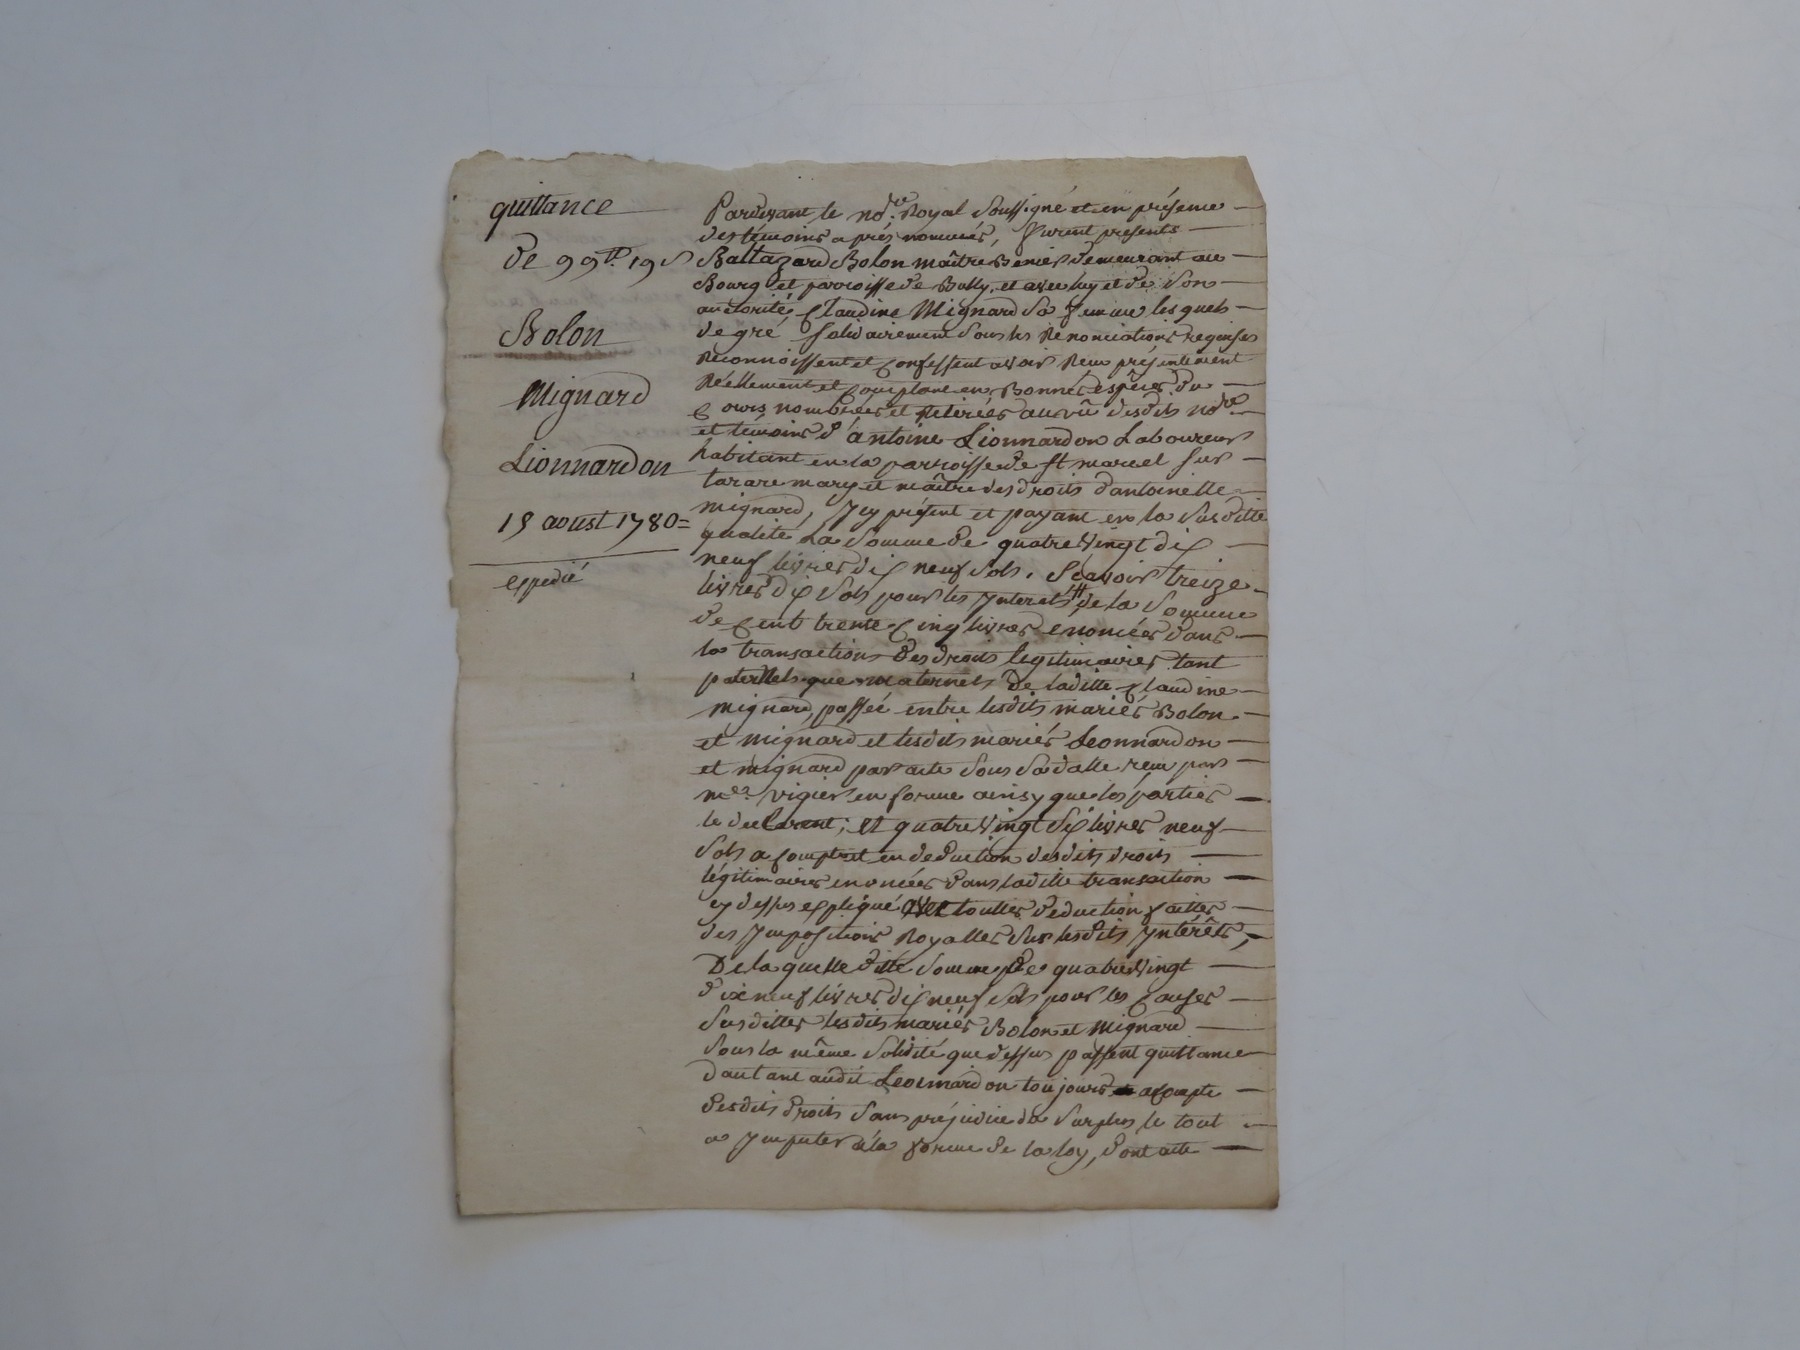 quittance
de 99tt 19s
Bolon
Mignard
Lionnardon
15 aoust 1780=
expedié
Pardevant le nore. Royal soussigné et en présence
des témoins après nommés, furent presents
Baltazard Bolon maître demeurant au
Bourg et parroisse de Bully, et avec luy et de son
autorité, Claudine Mignard sa femme lesquels
de gré solidairement sous les Renonciations requises
Reconnoissent et Confessent avoir Reçu présentement
Réellement et Comptant en Bonnes espèces du
Cours nombrées et Retirées au vû desdits nore
et témoins d'antoine Lionnardon Laboureur
habitant en la parroisse de st marcel sur
tarare mary et maître des droits d'antoinette
mignard, Icy présent et payant en la susditte
qualité La somme de quatre vingt dix
neuf livres dix neuf sols, sçavoir treize
livres dix sols pour les Interets # de la somme
de Cent trente Cinq livres enoncées dans
la transaction des droits legitimaires tant
paternels que maternels de laditte Claudine
mignard, passée entre lesdits mariés Bolon
et mignard et lesdits mariés Leonnardon
et mignard par acte sous sa datte reçu par
me. vigier en forme ainsy que les parties
le declarent; et quatre vingt six livres neuf
sols a Compte et en deduction desdits droits
légitimaires enoncées dans laditte transaction
cy dessus expliqué touttes deduction faittes
des Impositions Royalles sur lesdits Intérêts,
De laquelle ditte somme de quatre vingt
dix neuf livres dix neuf sols pour les Causes
susdittes lesdits mariés Bolon et Mignard
sous la même solidité que dessus passent quittance
dautant audit Leonnardon toujours a Compte
desdits droits sans préjudice du surplus le tout
a Imputer à la forme de la loy, dont acte